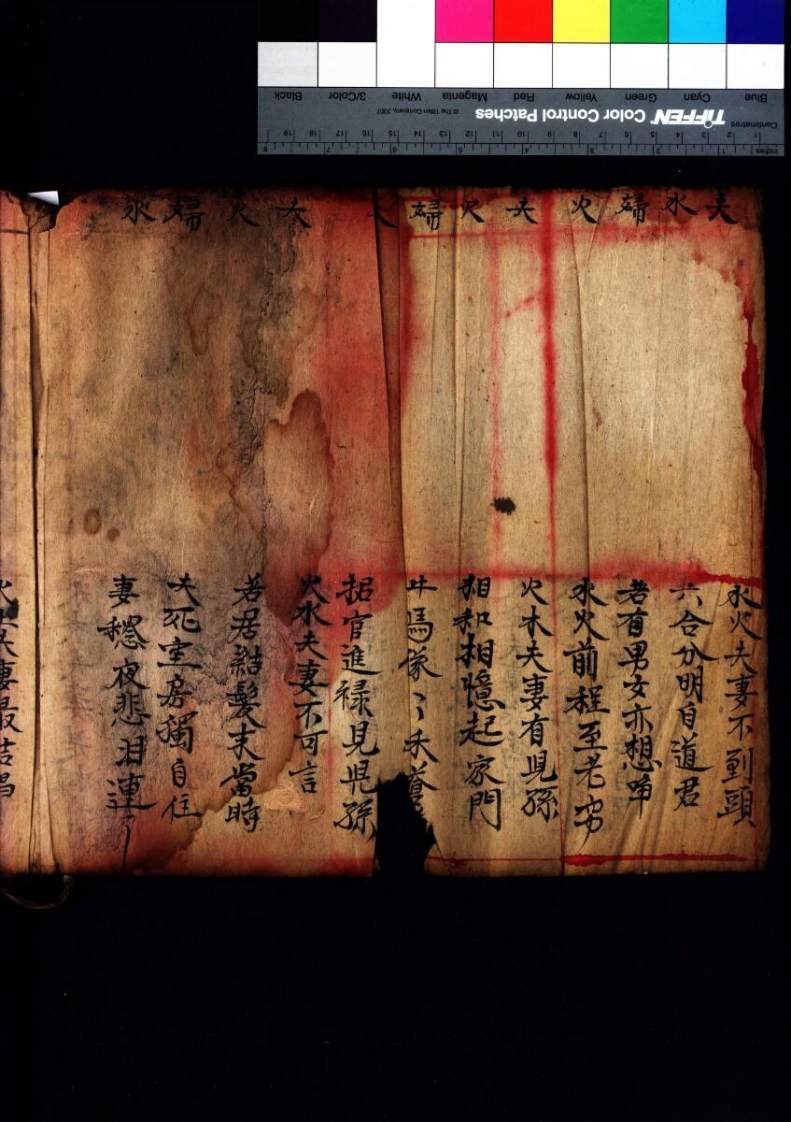 夫水婦火
夫火婦
夫火婦水
水火夫妻不到頭
六合分明自道君
若有男女亦想爭
水火前程至老穷
火木夫妻有見孫
相和相憶起家門
牛馬
招官進禄見児孫
火水夫妻不可言
若居結髪末當時
夫死空房獨自住
妻夜悲泪連
夫妻最吉昌
TIFFEN Color Control Patches
© The Tiffen Company, 2007
Blue Cyan Green Yellow Red Magenta White 3/Color Black
Centimetres 1 2 3 4 5 6 7 8 9 10 11 12 13 14 15 16 17 18 19
Inches 1 2 3 4 5 6 7 8